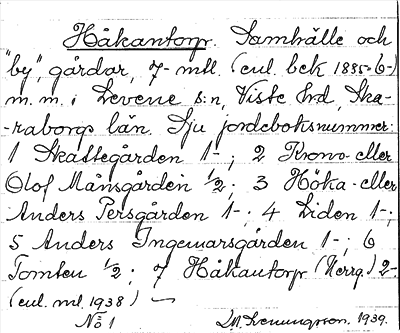 Håkantorp. Samhälle och
"by", gårdar, 7- mtl. (enl. bek 1885-6-)
m.m. i Levene s:n, Viste hrd, Ska-
-raborgs län. Sju jordeboksnummer:
1 Skattegården 1-; 2 Krono- eller
Olof Månsgården 1/2; 3 Höka- eller
Anders Persgården 1-; 4 Liden 1-;
5 Anders Ingemarsgården 1-; 6
Tomten 1/2; 7 Håkantorp (Herrg) 2-
(enl. ml. 1938) —
No 1 Svenungsson. 1939.